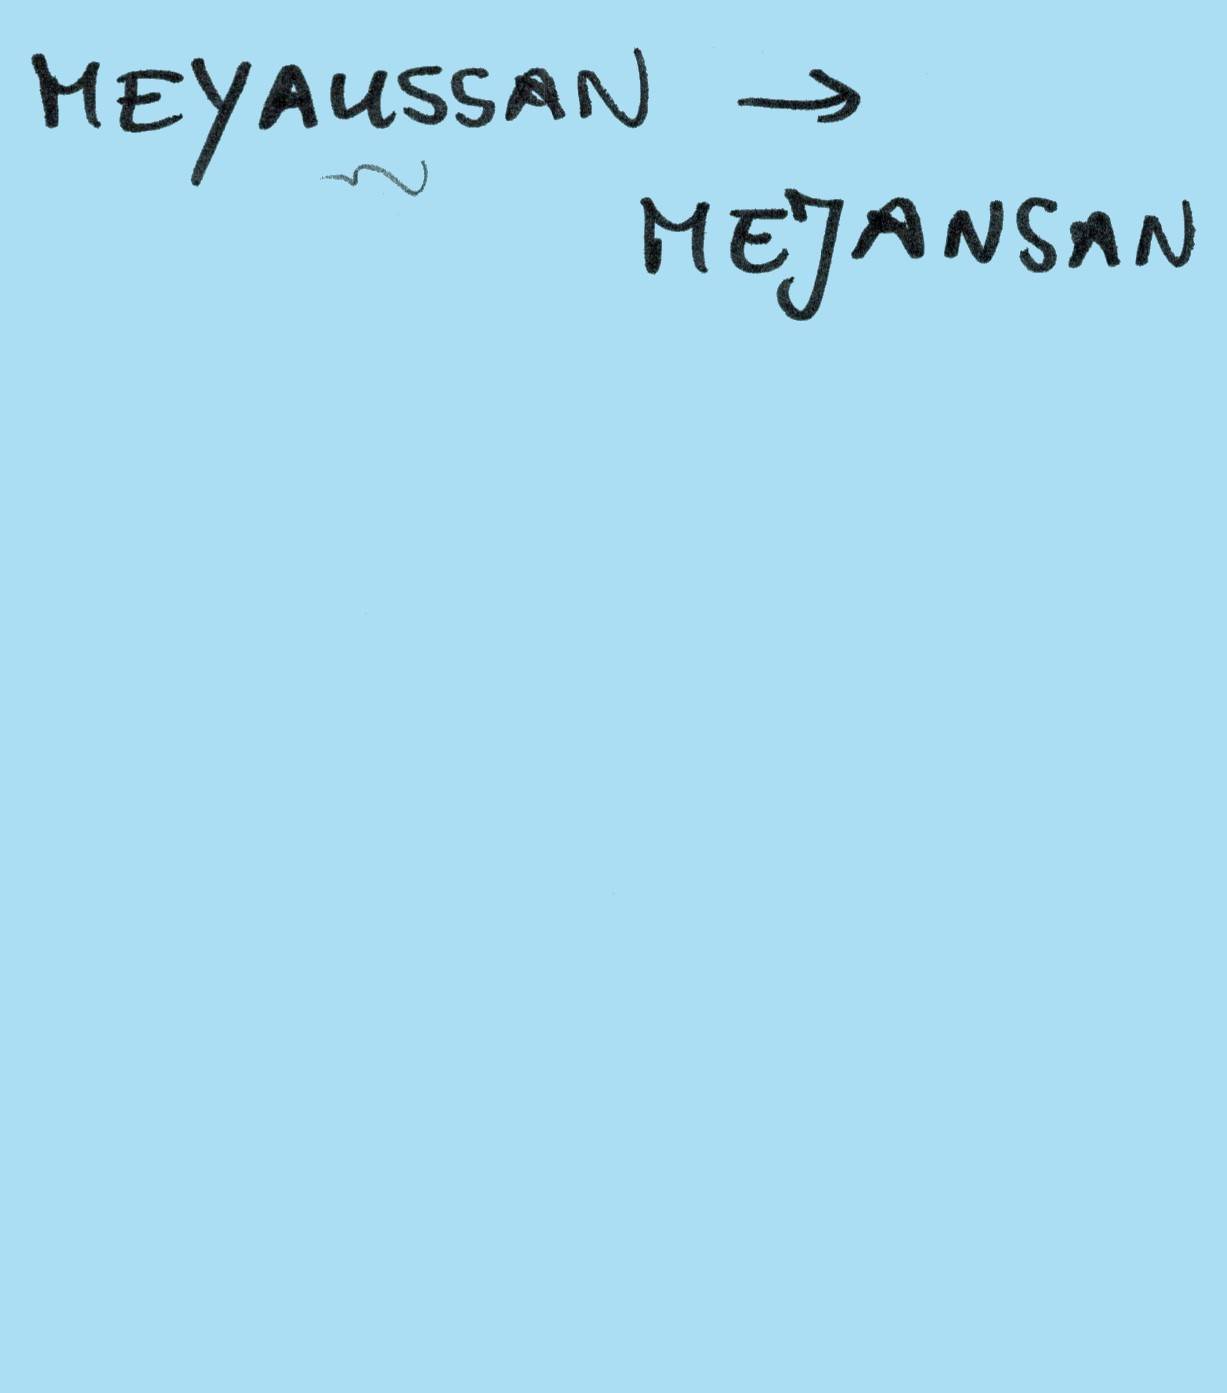 MEYAUSSAN →
MEJANSAN